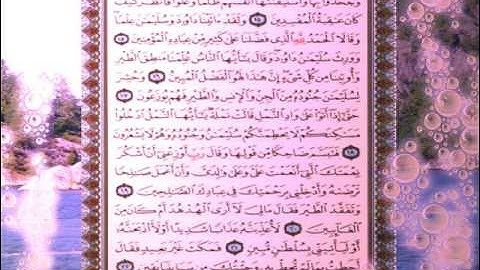 وَجَحَدُوا۟ بِهَا وَٱسْتَيْقَنَتْهَآ أَنفُسُهُمْ ظُلْمًا وَعُلُوًّا فَٱنظُرْ كَيْفَ
كَانَ عَٰقِبَةُ ٱلْمُفْسِدِينَ ١٤ وَلَقَدْ ءَاتَيْنَا دَاوُۥدَ وَسُلَيْمَٰنَ عِلْمًا
وَقَالَا ٱلْحَمْدُ لِلَّهِ ٱلَّذِى فَضَّلَنَا عَلَىٰ كَثِيرٍ مِّنْ عِبَادِهِ ٱلْمُؤْمِنِينَ ١٥
وَوَرِثَ سُلَيْمَٰنُ دَاوُۥدَ وَقَالَ يَٰٓأَيُّهَا ٱلنَّاسُ عُلِّمْنَا مَنطِقَ ٱلطَّيْرِ
وَأُوتِينَا مِن كُلِّ شَىْءٍ إِنَّ هَٰذَا لَهُوَ ٱلْفَضْلُ ٱلْمُبِينُ ١٦ وَحُشِرَ
لِسُلَيْمَٰنَ جُنُودُهُۥ مِنَ ٱلْجِنِّ وَٱلْإِنسِ وَٱلطَّيْرِ فَهُمْ يُوزَعُونَ ١٧
حَتَّىٰٓ إِذَآ أَتَوْا۟ عَلَىٰ وَادِ ٱلنَّمْلِ قَالَتْ نَمْلَةٌ يَٰٓأَيُّهَا ٱلنَّمْلُ ٱدْخُلُوا۟
مَسَٰكِنَكُمْ لَا يَحْطِمَنَّكُمْ سُلَيْمَٰنُ وَجُنُودُهُۥ وَهُمْ لَا يَشْعُرُونَ
١٨ فَتَبَسَّمَ ضَاحِكًا مِّن قَوْلِهَا وَقَالَ رَبِّ أَوْزِعْنِىٓ أَنْ أَشْكُرَ
نِعْمَتَكَ ٱلَّتِىٓ أَنْعَمْتَ عَلَىَّ وَعَلَىٰ وَٰلِدَىَّ وَأَنْ أَعْمَلَ صَٰلِحًا
تَرْضَىٰهُ وَأَدْخِلْنِى بِرَحْمَتِكَ فِى عِبَادِكَ ٱلصَّٰلِحِينَ ١٩
وَتَفَقَّدَ ٱلطَّيْرَ فَقَالَ مَا لِىَ لَآ أَرَى ٱلْهُدْهُدَ أَمْ كَانَ مِنَ
ٱلْغَآئِبِينَ ٢٠ لَأُعَذِّبَنَّهُۥ عَذَابًا شَدِيدًا أَوْ لَأَا۟ذْبَحَنَّهُۥٓ
أَوْ لَيَأْتِيَنِّى بِسُلْطَٰنٍ مُّبِينٍ ٢١ فَمَكَثَ غَيْرَ بَعِيدٍ فَقَالَ
أَحَطتُ بِمَا لَمْ تُحِطْ بِهِۦ وَجِئْتُكَ مِن سَبَإٍۭ بِنَبَإٍ يَقِينٍ ٢٢